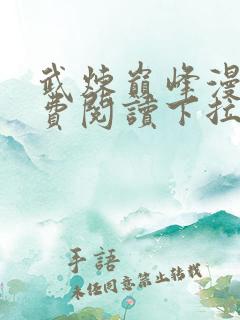 武煉巔峰漫
費閱讀下拉
手語
未經同意禁止轉載